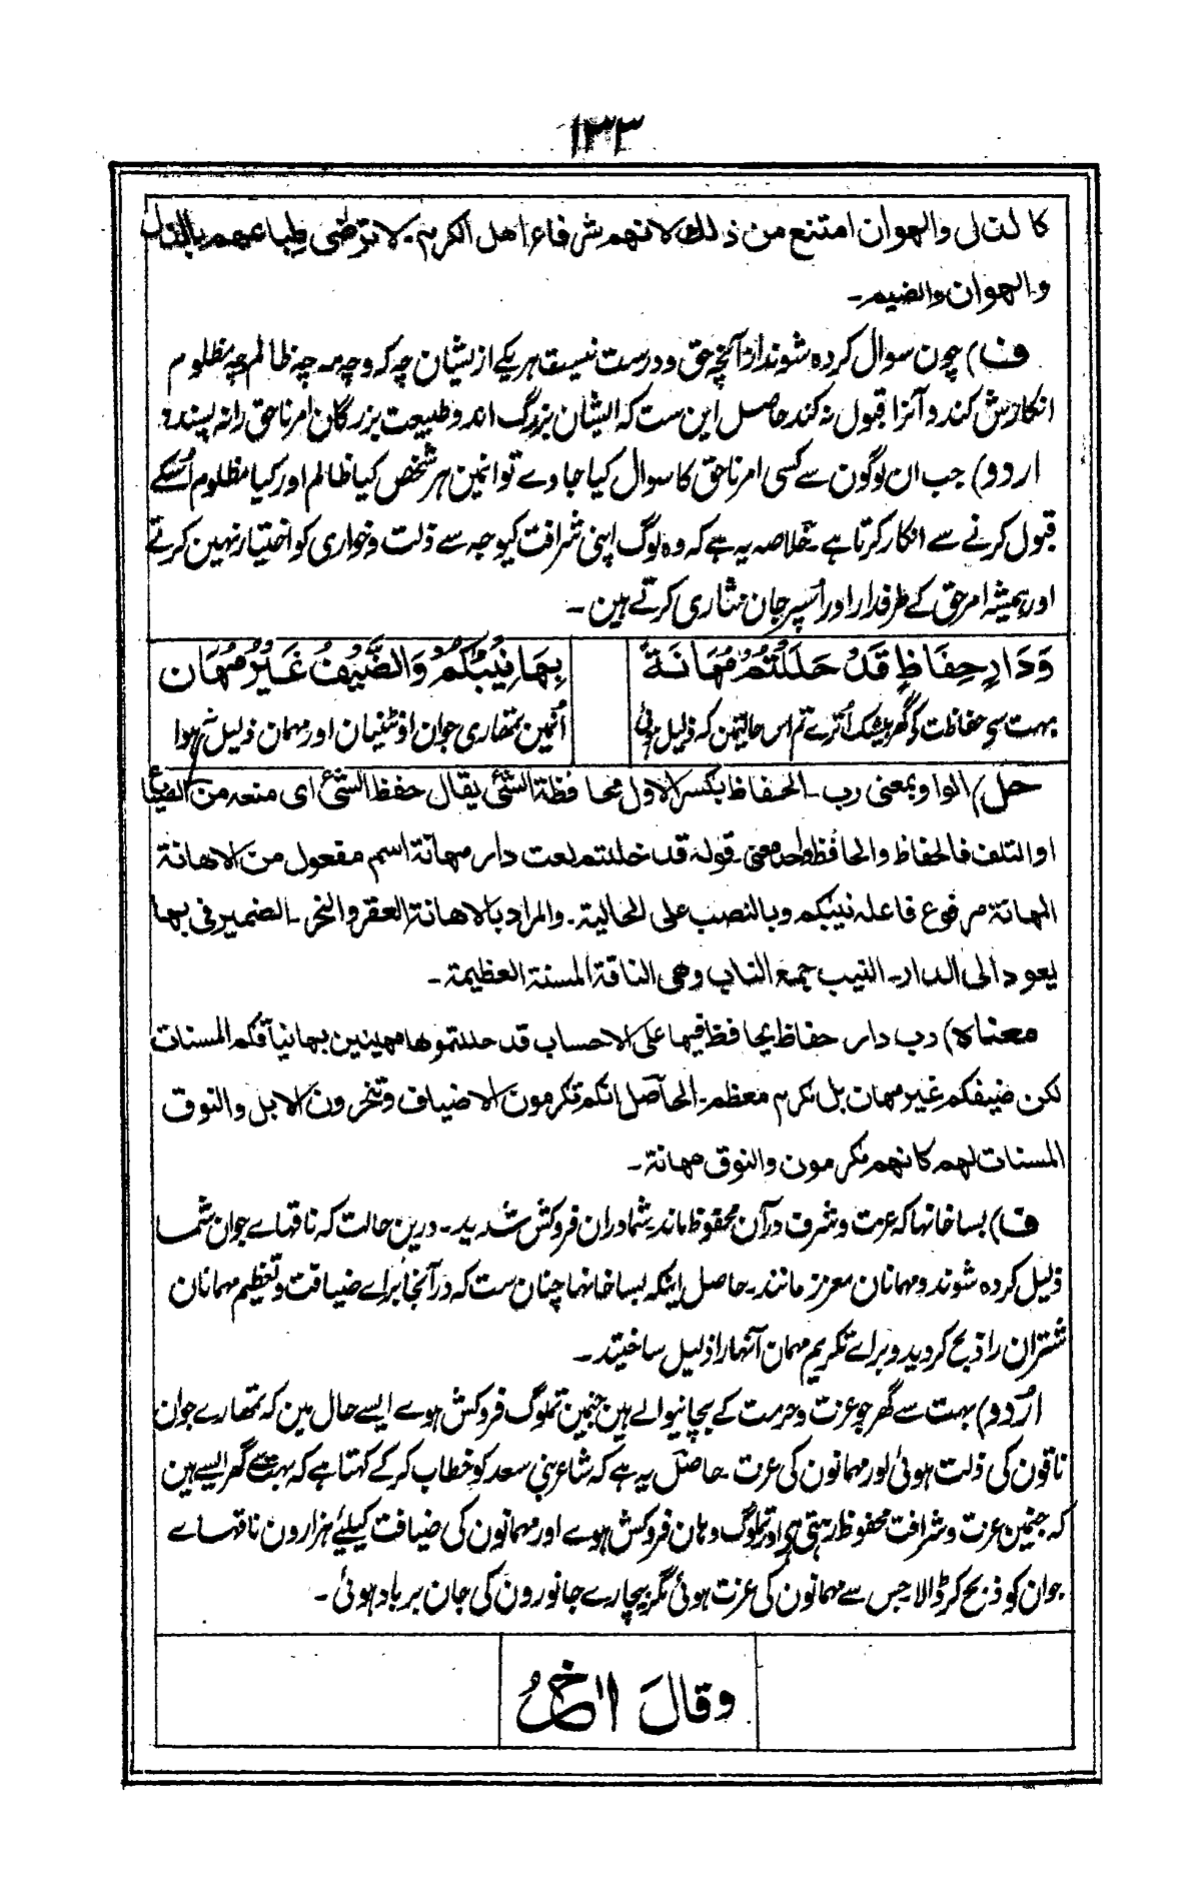 ۱۳۳
کالذل والهوان امتنع من ذلك لانهم شرفاء اهل الكرم لا ترضى طباعهم بالذل
والهوان والضيم۔
ف) چون سوال کرده شوند از آنچه حق و درست نیست هر یکے از ایشان چه که و چه مه چه ظالم چه مظلوم
انکارش کند و آنرا قبول نه کند حاصل این ست که ایشان بزرگ اند و طبیعت بزرگان امر ناحق را نه پسندد۔
اردو) جب ان لوگون سے کسی امر ناحق کا سوال کیا جاوے تو انمین ہر شخص کیا ظالم اور کیا مظلوم اُسکے
قبول کرنے سے انکار کرتا ہے۔ خلاصہ یہ ہے کہ وہ لوگ اپنی شرافت کیوجہ سے ذلت و خواری کو اختیار نہین کرتے
اور ہمیشہ امر حق کے طرفدار اور اُسپر جان نثاری کرتے ہین۔
وَدَارِ حِفَاظٍ قَدْ حَلَلْتُمْ مُهَانَةٌ بِهَا نِيْبُكُمْ وَالضَّيْفُ غَيْرُ مُهَان
بہت سی حفاظت کو گھر بیشک اُترے تم اس حالتمین کہ ذلیل ہوئی اُنمین تمھاری جوان اونٹنیان اور مہمان ذلیل نہوا
حل) الواو بمعنى رب۔ الحفاظ بكسر الاول محافظة الشئ يقال حفظ الشئ اى منعه من الضياع
او التلف فالحفاظ والمحافظ واحد معنى۔ قوله قد حللتم نعت دار مهانة اسم مفعول من الاهانة
المهانة مرفوع فاعله نيبكم وبالنصب على الحالية۔ والمراد بالاهانة العقر والنحر۔ الضمير فى بها
يعود الى الدار۔ النيب جمع الناب وهى الناقة المسنة العظيمة۔
معناه) رب دار حفاظ يحافظ فيها على الاحساب قد حللتموها مهينين بها نياقكم المسنات
لكن ضيفكم غير مهان بل مكرم معظم۔ الحاصل انكم تكرمون الاضياف وتنحرون الابل والنوق
المسنات لهم كانهم مكرمون والنوق مهانة۔
ف) بسا خانها که عزت و شرف در آن محفوظ ماند شما در ان فروکش شدید۔ درین حالت که ناقهاے جوان شما
ذلیل کرده شوند و مهمانان معزز مانند۔ حاصل اینکه بسا خانها چنان ست که در آنجا براے ضیافت و تعظیم مهمانان
شتران را ذبح کردید و براے تکریم مهمان آنها را ذلیل ساختید۔
اُردو) بہت سے گھر جو عزت و حرمت کے بچانیوالے ہین جنمین تملوگ فروکش ہوے ایسے حال مین کہ تمھارے جوان
ناقون کی ذلت ہوئی اور مہمانون کی عزت۔ حاصل یہ ہے کہ شاعر بنی سعد کو خطاب کرکے کہتا ہے کہ بہت سے گھر ایسے ہین
کہ جنمین عزت و شرافت محفوظ رہتی ہے اور تملوگ وہان فروکش ہوے اور مہمانون کی ضیافت کیلئے ہزارون ناقہاے
جوان کو ذبح کر ڈالا جس سے مہمانون کی عزت ہوئی مگر بیچارے جانورون کی جان برباد ہوئی۔
وقالَ اٰخرُ